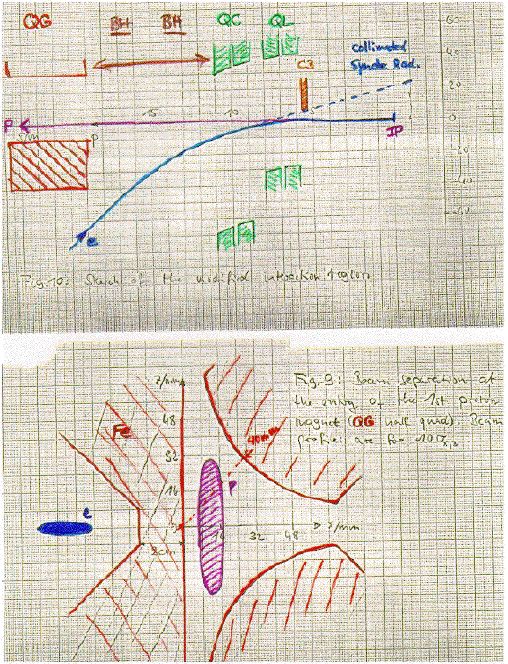 QG BH BH QC QL
60
40
C3 collimated
Synchr. Rad.
20
15 10
P IP 0
P
-20
-40
e
Fig. 10: Sketch of the modified interaction region
z/mm
Fig. 9: Beam separation at
the entry of the 1st proton
magnet (QG half quad). Beam
profiles are for 10σ
48
Fe 40mm
32
16 P
e
16 32 48 r/mm
2cm